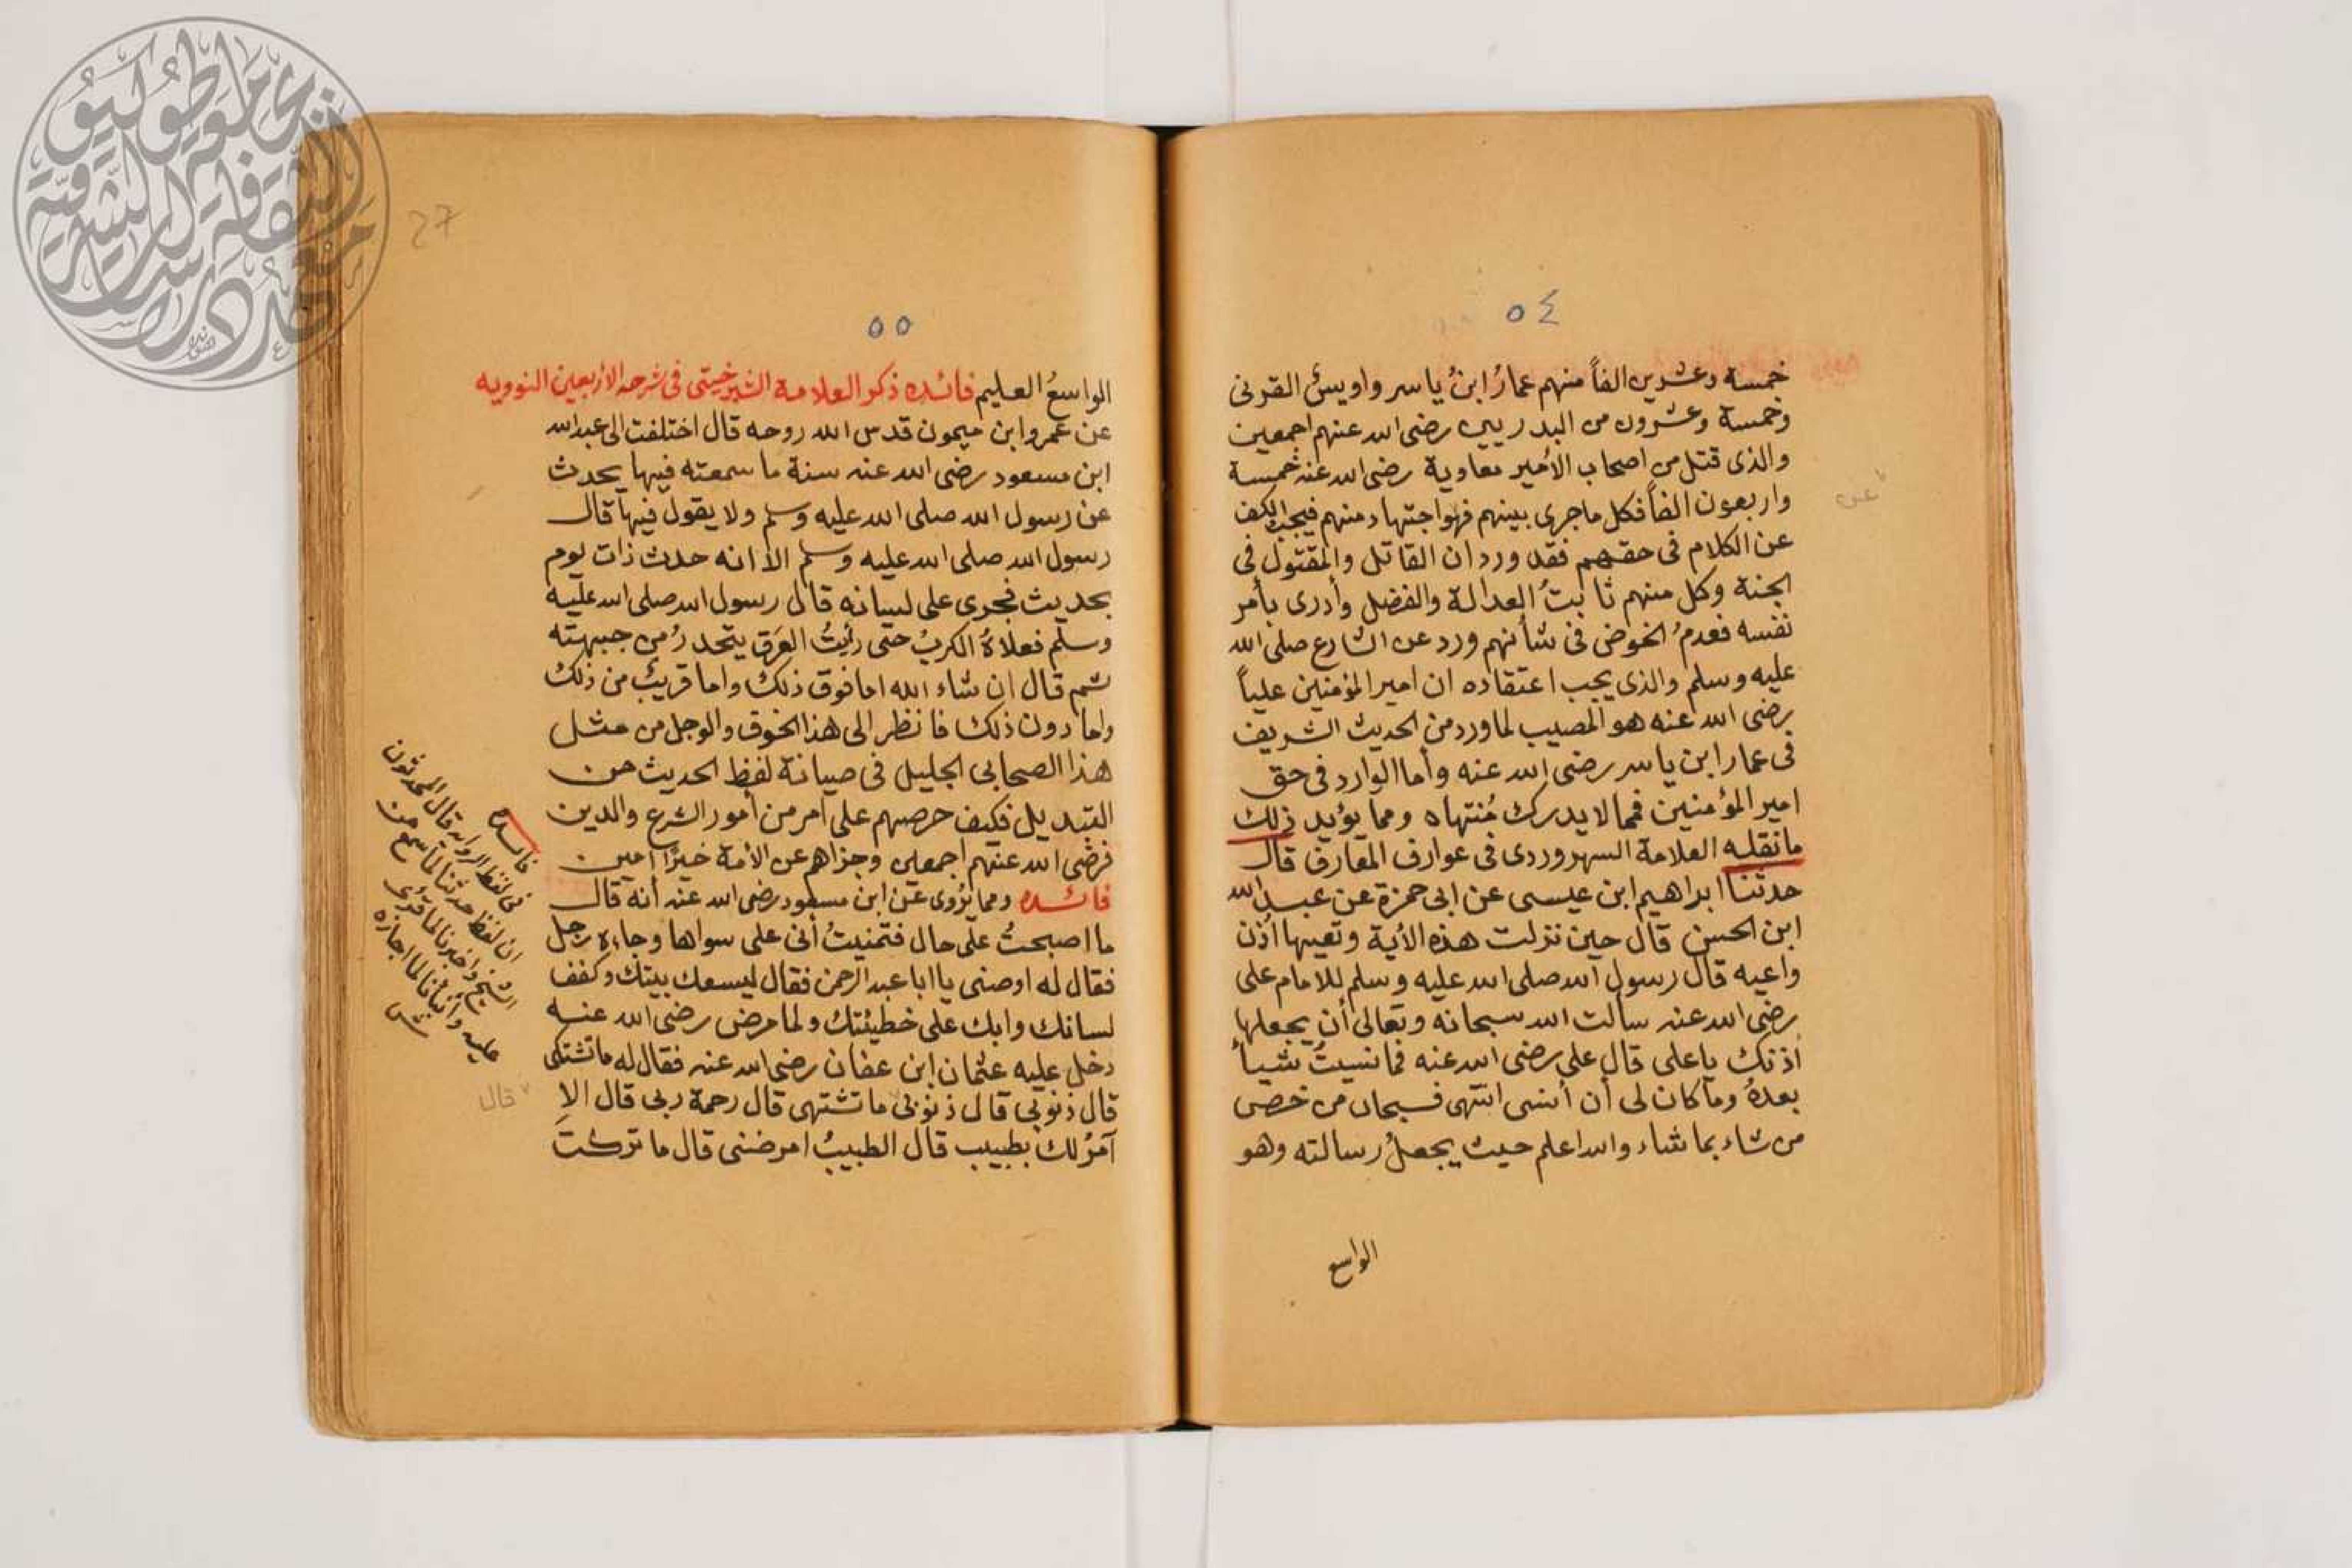 ٥٤
خمسة وعشرين الفاً منهم عمارُ ابنُ ياسر واويسُ القرنى
وخمسة وعشرون من البدريين رضى الله عنهم اجمعين
والذى قتل من اصحاب الأمير معاوية رضى الله عنه خمسة
واربعون الفاً فكل ماجرى بينهم فهو اجتهاد منهم فيجب الكف
عن الكلام فى حقهم فقد ورد ان القاتل والمقتول فى
الجنة وكل منهم ثابتُ العدالة والفضل وأدرى بأمر
نفسه فعدمُ الخوض فى شأنهم ورد عن الشارع صلى الله
عليه وسلم والذى يجب اعتقاده ان امير المؤمنين علياً
رضى الله عنه هو المصيب لما ورد من الحديث الشريف
فى عمار ابن ياسر رضى الله عنه وأما الوارد فى حق
امير المؤمنين فمما لا يدرك مُنتهاه ومما يؤيد ذلك
ما نقله العلامة السهروردى فى عوارف المعارف قال
حدثنا ابراهيم ابن عيسى عن ابى حمزة عن عبد الله
ابن الحسن قال حين نزلت هذه الأية وتعيها أذن
واعيه قال رسول الله صلى الله عليه وسلم للامام على
رضى الله عنه سألت الله سبحانه وتعالى أن يجعلها
أذنك يا على قال على رضى الله عنه فما نسيتُ شيأ
بعدهُ وما كان لى أن أنسى انتهى فسبحان من خص
من شاء بما شاء والله اعلم حيث يجعلُ رسالته وهو
الواسع
عن
27
٥٥
الواسعُ العليم فائده ذكر العلامة الشبرخيتى فى شرحه الأربعين النوويه
عن عمرو ابن ميمون قدس الله روحه قال اختلفت الى عبد الله
ابن مسعود رضى الله عنه سنة ما سمعته فيها يحدث
عن رسول الله صلى الله عليه وسلم ولا يقول فيها قال
رسول الله صلى الله عليه وسلم الا انه حدث ذات يوم
بحديث فجرى على لسانه قال رسول الله صلى الله عليه
وسلم فعلاهُ الكربُ حتى رأيتُ العَرَق يتحدرُ من جبهته
ثم قال ان شاء الله اما فوق ذلك واما قريبُ من ذلك
واما دون ذلك فانظر الى هذا الخوف والوجل من مثل
هذا الصحابى الجليل فى صيانة لفظ الحديث من
التبديل فكيف حرصهم على أمر من أمور الشرع والدين
فرضى الله عنهم اجمعين وجزاهم عن الأمة خيرًا امين
فائده ومما يُروى عن ابن مسعود رضى الله عنه أنه قال
ما اصبحتُ على حال فتمنيتُ أنى على سواها وجاءه رجل
فقال له اوصنى يا ابا عبد الرحمن فقال ليسعك بيتك وكفف
لسانك وابك على خطيئتك ولما مرض رضى الله عنه
دخل عليه عثمان ابن عفان رضى الله عنه فقال له ما تشتكى
قال ذنوبى قال ما تشتهى قال رحمة ربى قال الا
آمرُ لك بطبيب قال الطبيبُ امرضنى قال ما تركتَ
قال
فائده
فى لفظ الروايه قال المحدثون
ان لفظ حدثنا لما سمع من
الشيخ واخبرنا لما قُرى
عليه وأنبأنا لما اجازه